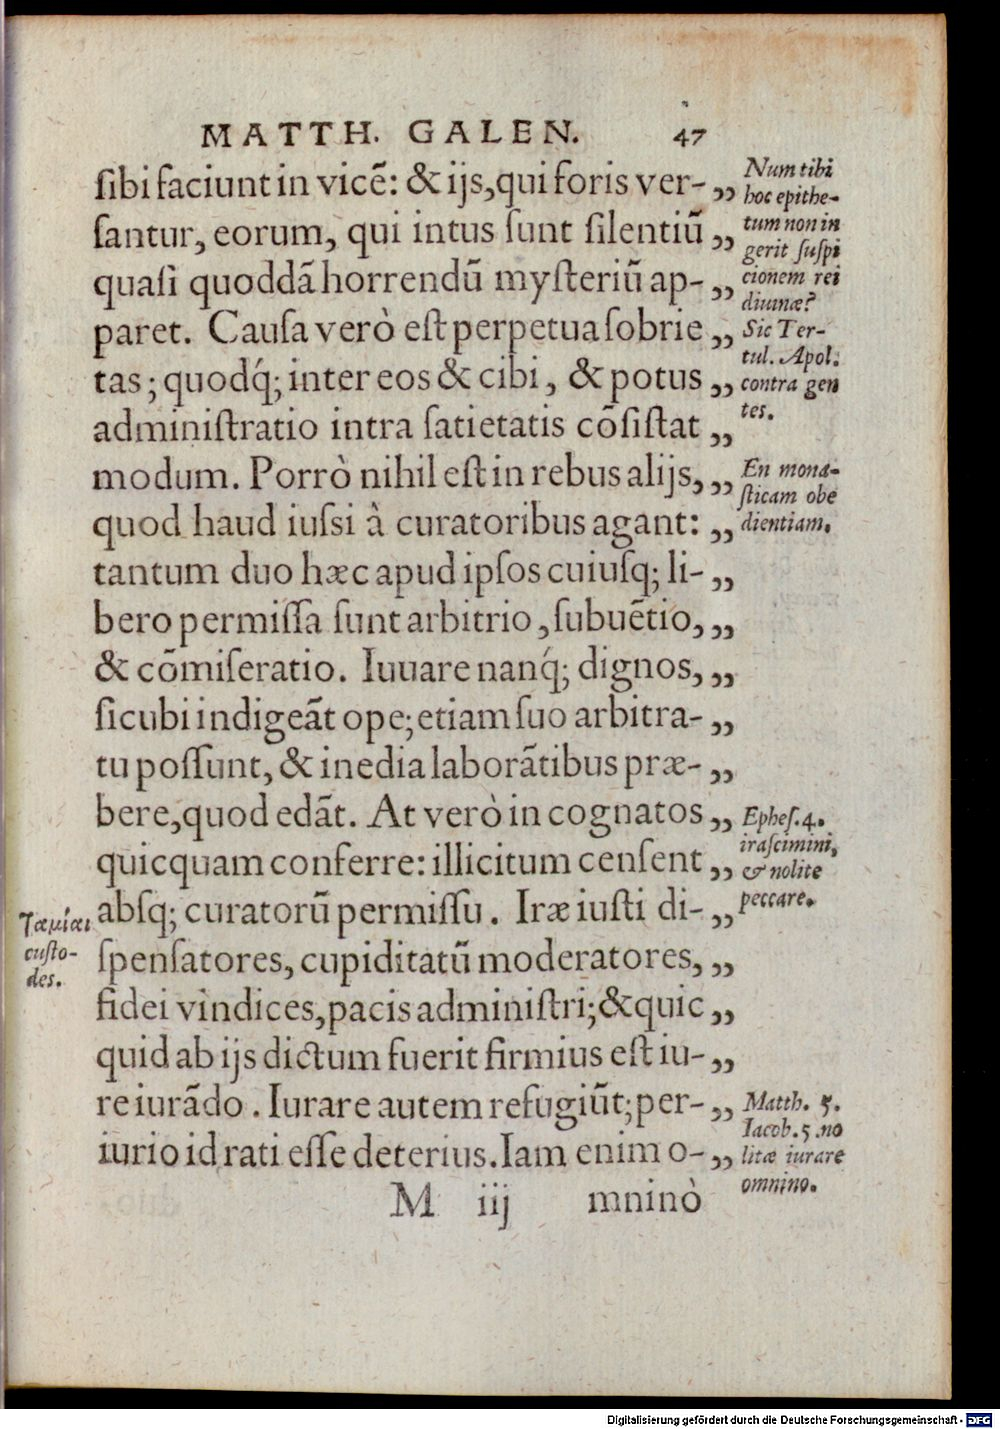 MATTH. GALEN. 47
ſibi faciunt in vicē: & ijs, qui foris ver- „
ſantur, eorum, qui intus ſunt ſilentiū „
quaſi quoddā horrendū myſteriū ap- „
paret. Cauſa verò eſt perpetua ſobrie „
tas; quodq́; inter eos & cibi, & potus „
adminiſtratio intra ſatietatis cōſiſtat „
modum. Porrò nihil eſt in rebus alijs, „
quod haud iuſsi à curatoribus agant: „
tantum duo hæc apud ipſos cuiuſq; li- „
bero permiſſa ſunt arbitrio, ſubuētio, „
& cōmiſeratio. Iuuare nanq́; dignos, „
ſicubi indigeāt ope; etiam ſuo arbitra- „
tu poſſunt, & inedia laborātibus præ- „
bere, quod edāt. At verò in cognatos „
quicquam conferre: illicitum cenſent „
abſq; curatorū permiſſu. Iræ iuſti di- „
ſpenſatores, cupiditatū moderatores, „
fidei vindices, pacis adminiſtri; & quic „
quid ab ijs dictum fuerit firmius eſt iu- „
re iurādo. Iurare autem refugiūt; per- „
iurio id rati eſſe deterius. Iam enim o- „
M iij mninò
Num tibi
hoc epithe-
tum non in
gerit ſuſpi
cionem rei
diuinæ?
Sic Ter-
tul. Apol.
contra gen
tes.
En mona-
ſticam obe
dientiam.
Epheſ. 4.
iraſcimini,
& nolite
peccare.
Ταμίαι
cuſto-
des.
Matth. 5.
Iacob. 5. no
litæ iurare
omnino.
Digitalisierung gefördert durch die Deutsche Forschungsgemeinschaft - DFG